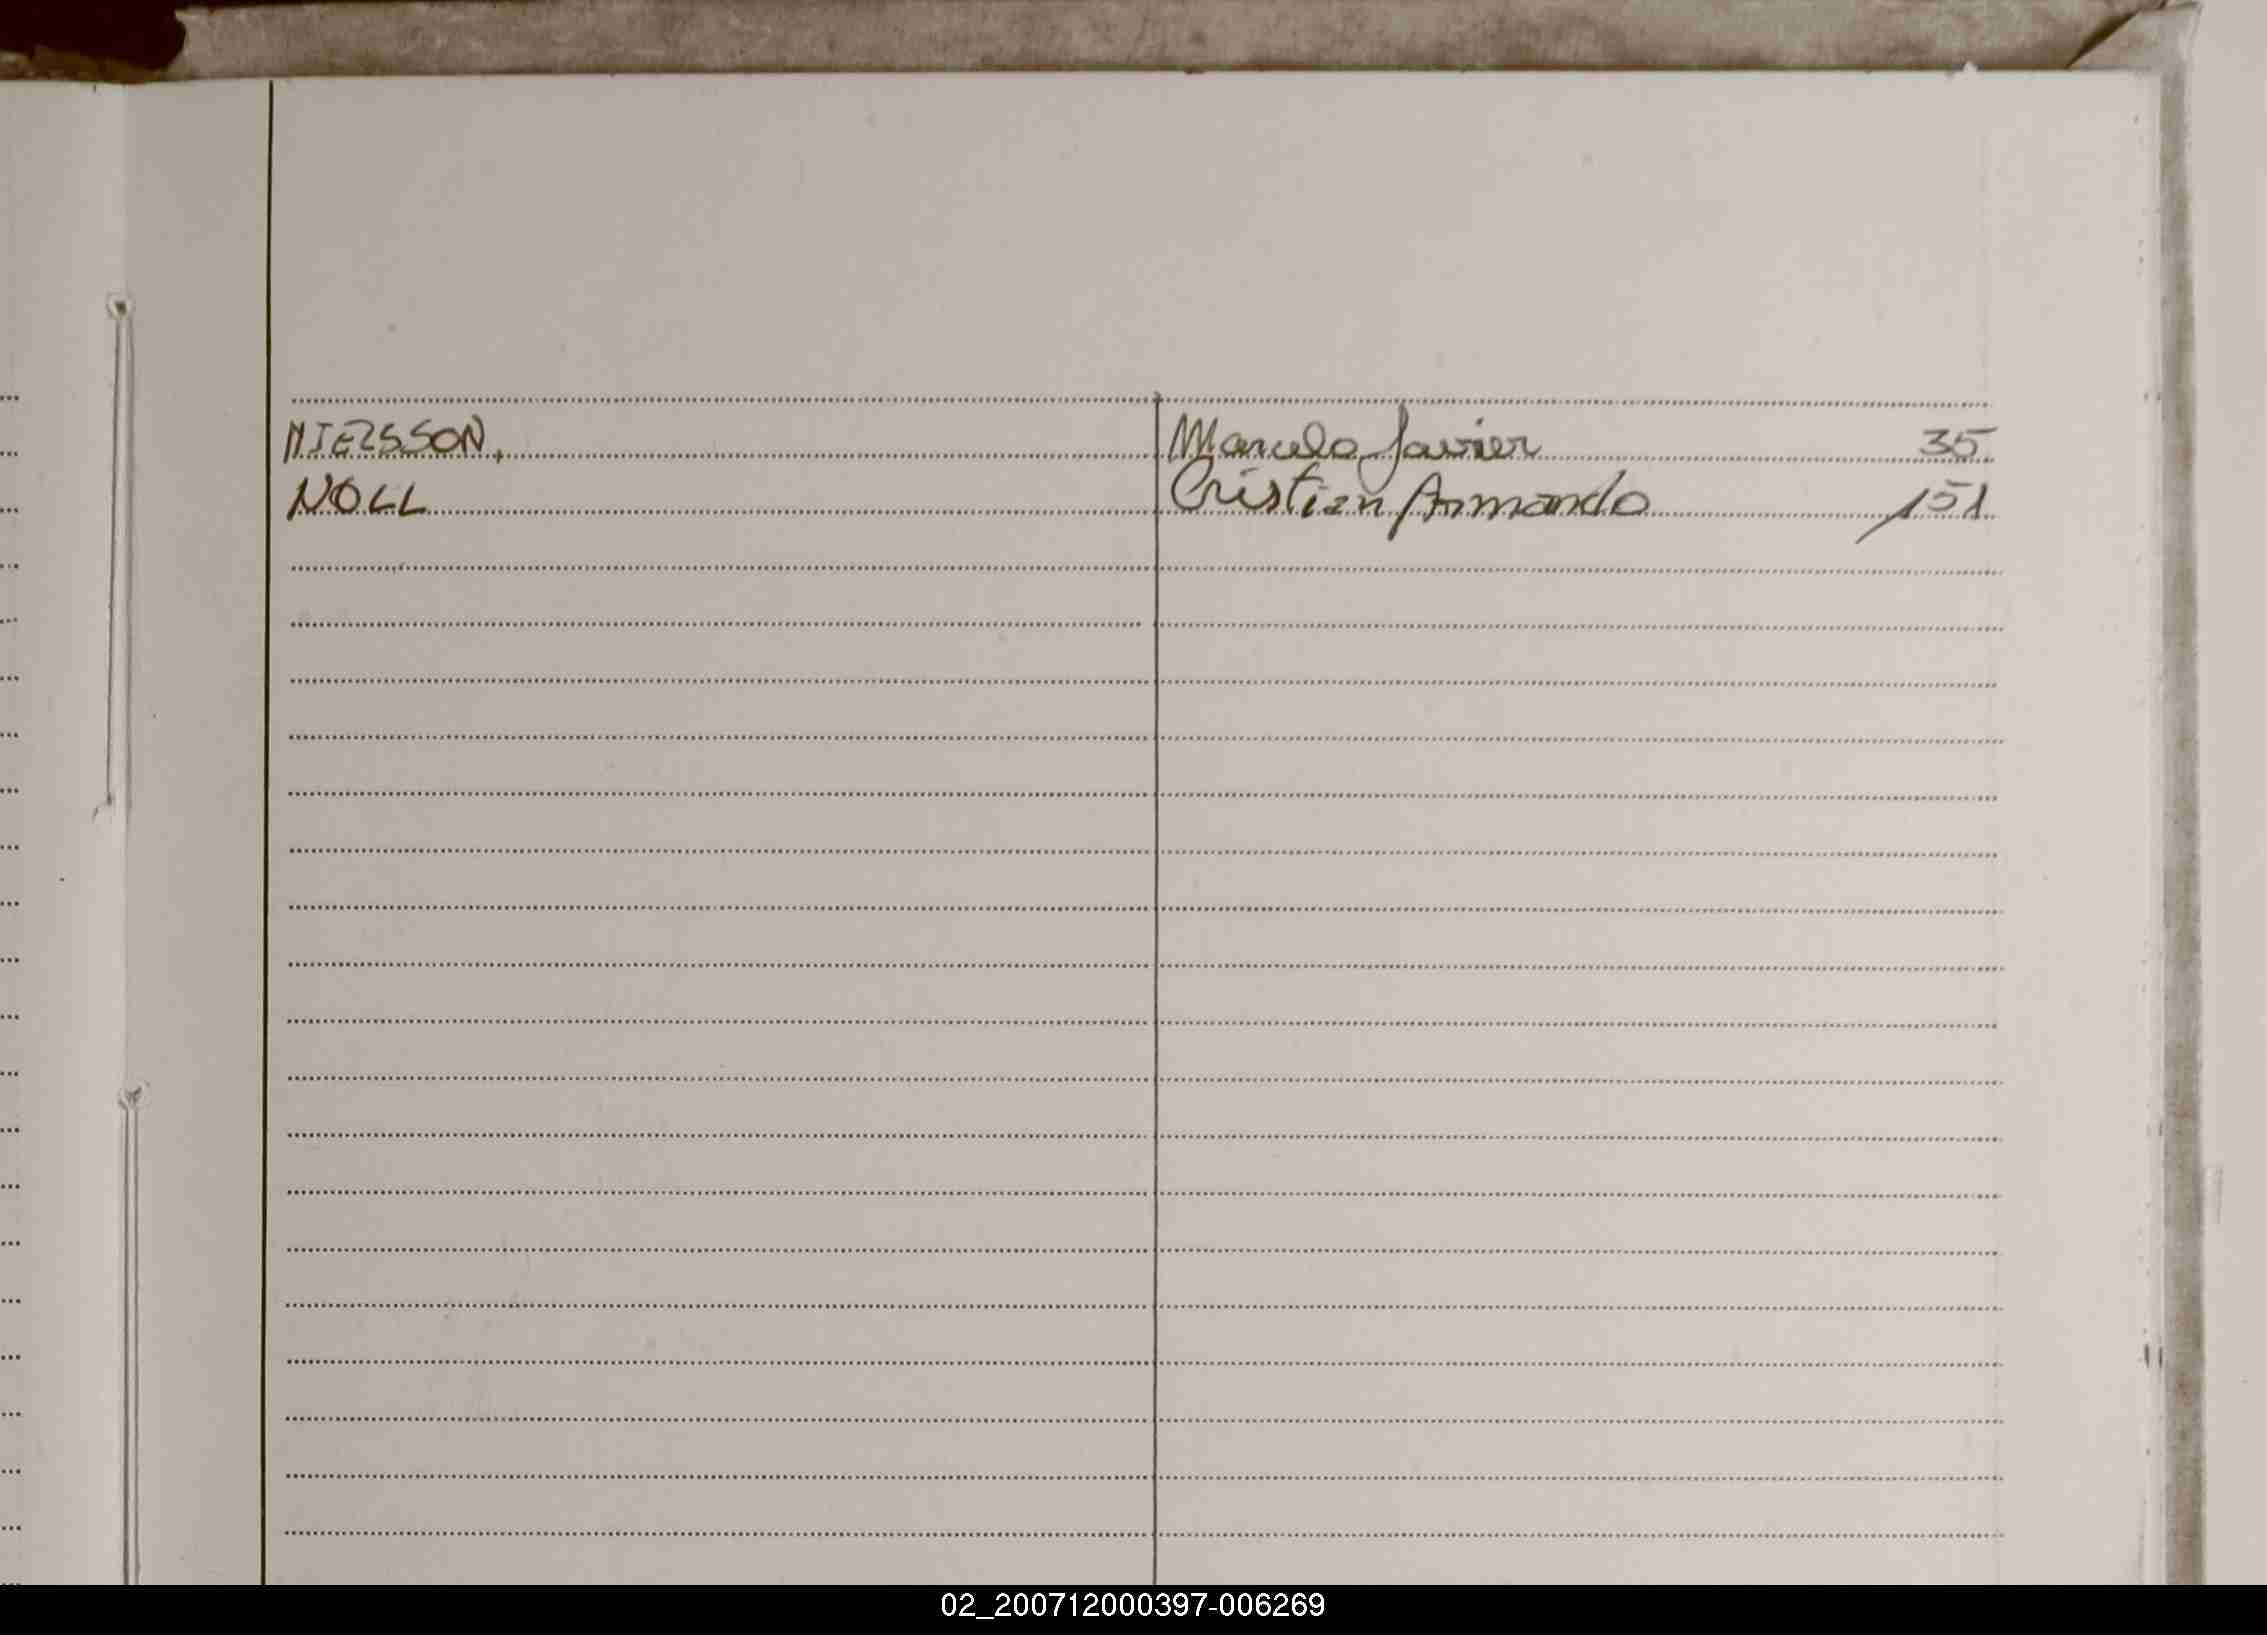 NIELSSON, Marcelo Javier 35
NOLL Cristian Armando 151
02_200712000397-006269